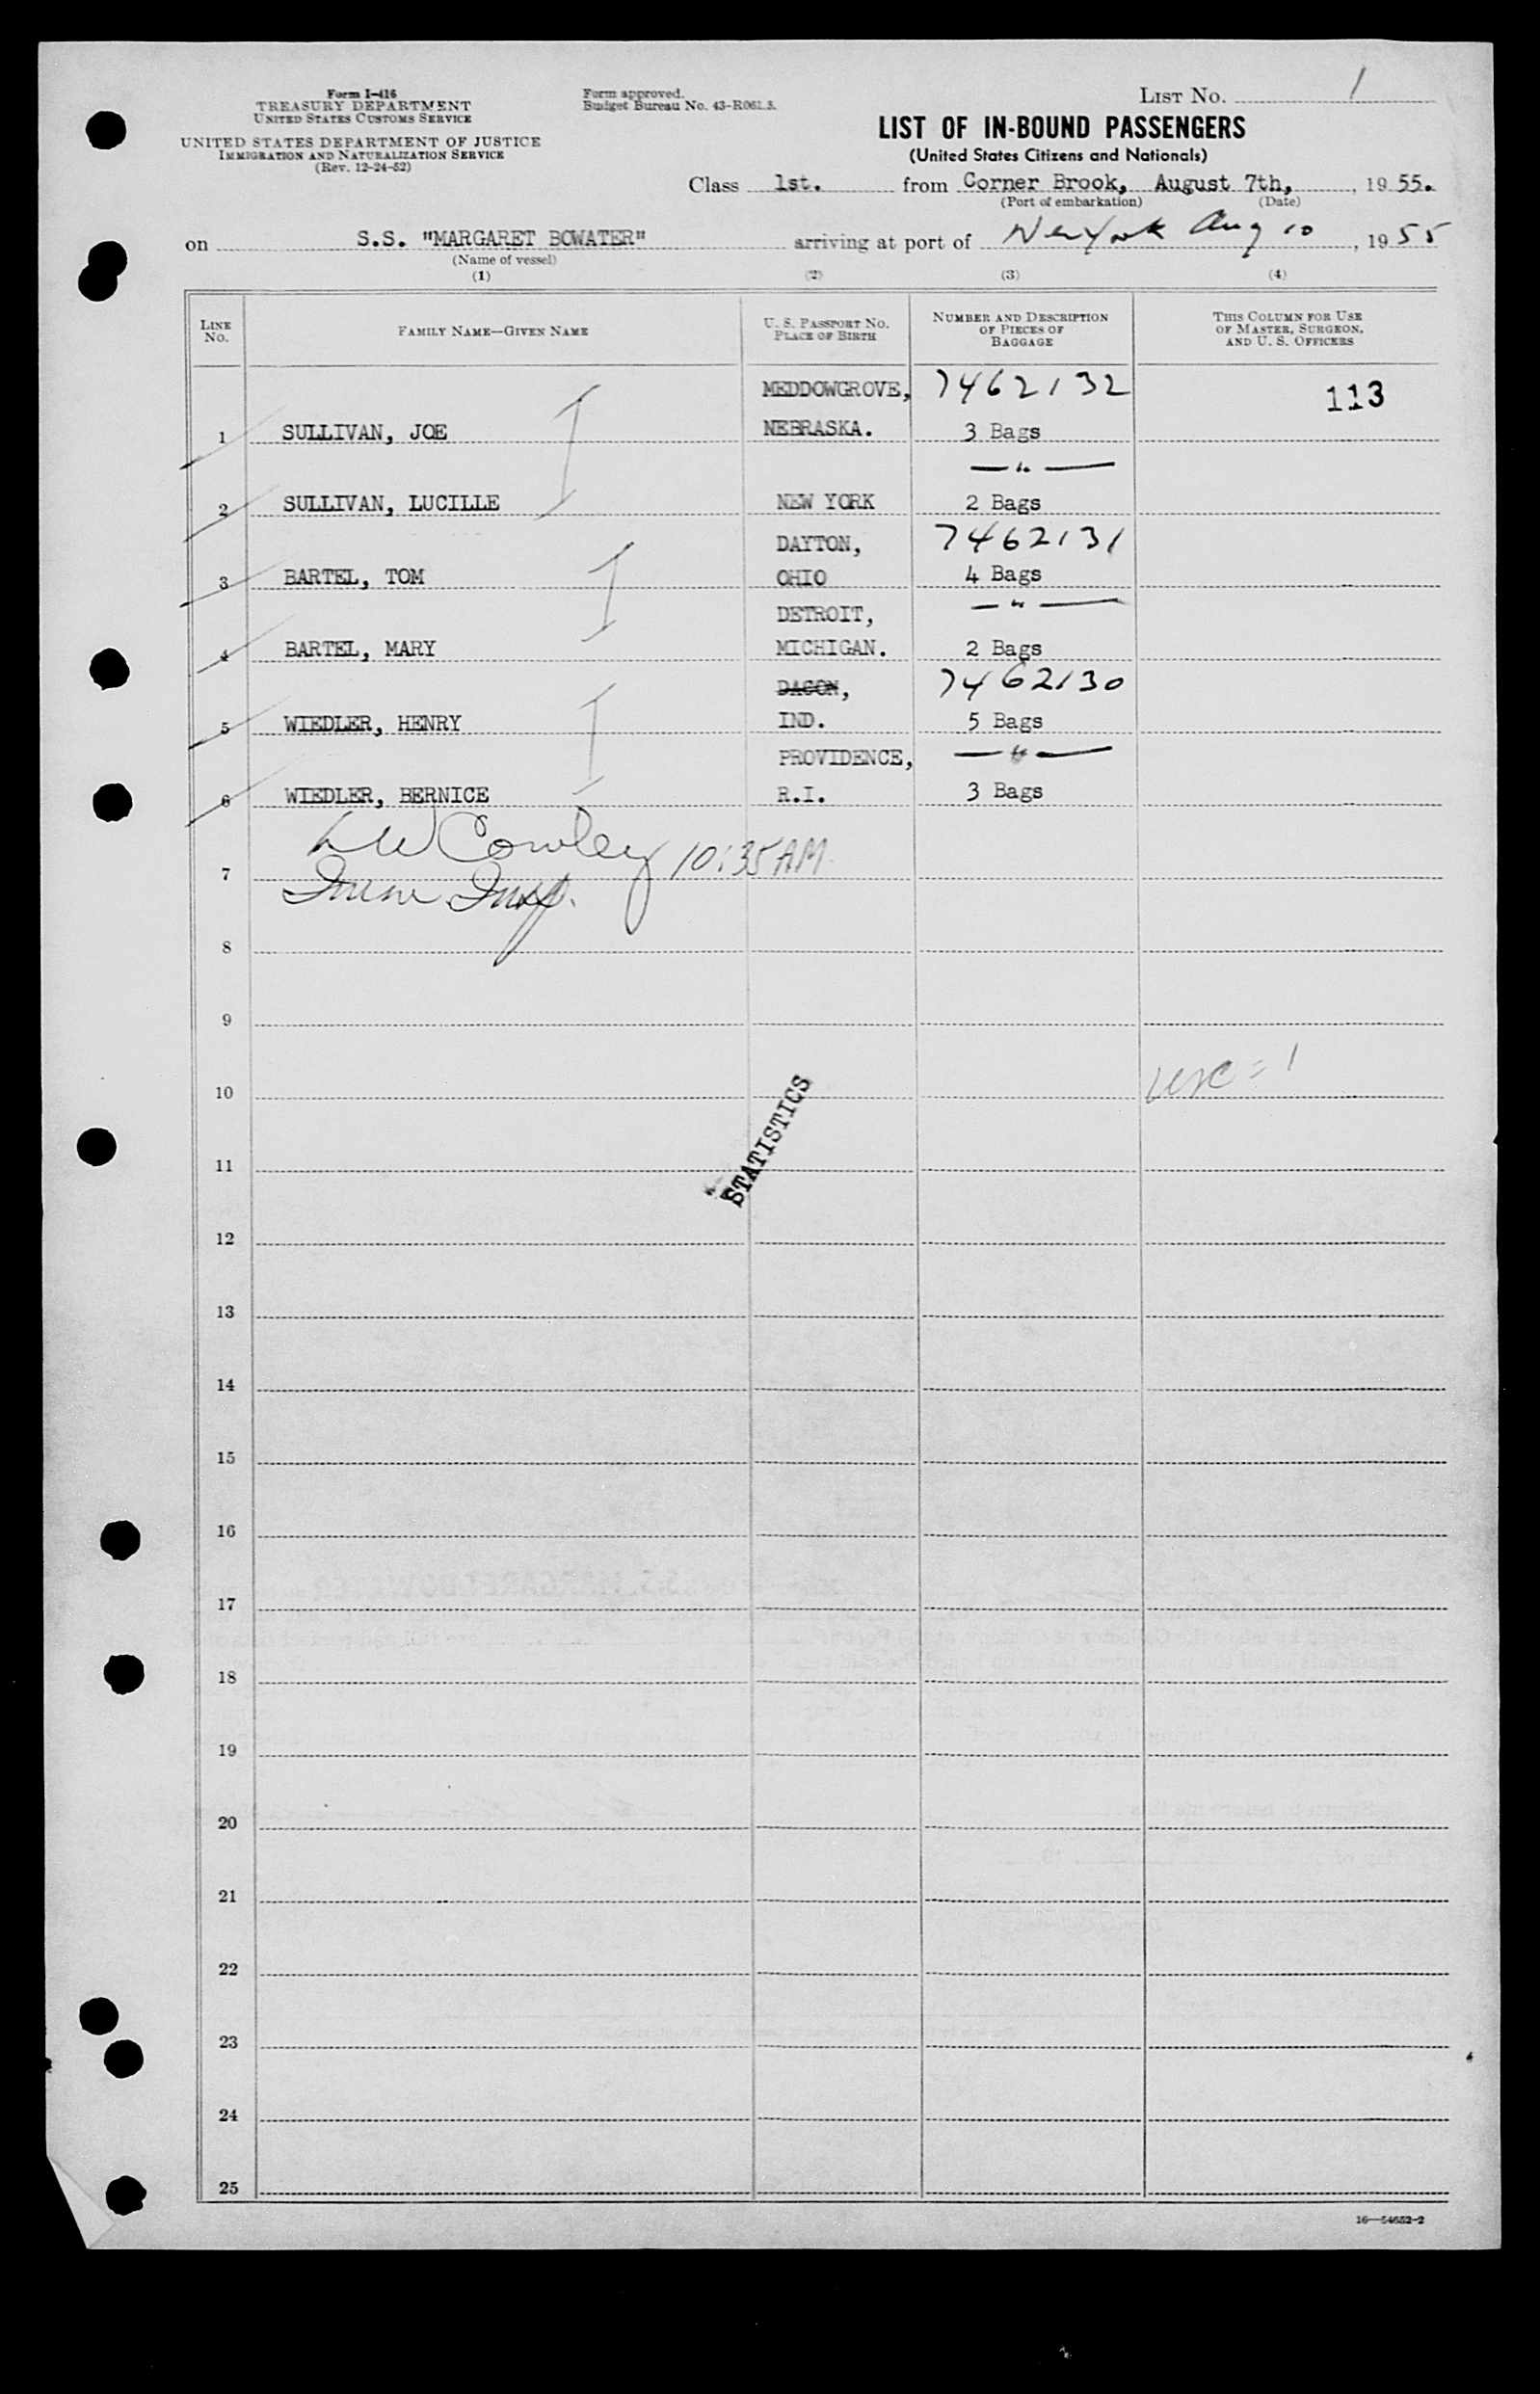 Form I-416
TREASURY DEPARTMENT
UNITED STATES CUSTOMS SERVICE
UNITED STATES DEPARTMENT OF JUSTICE
IMMIGRATION AND NATURALIZATION SERVICE
(Rev. 12-24-52)
Form approved.
Budget Bureau No. 43-R061.3.
LIST NO. 1
LIST OF IN-BOUND PASSENGERS
(United States Citizens and Nationals)
Class 1st. from Corner Brook, August 7th, , 19 55.
(Port of embarkation) (Date)
on S.S. "MARGARET BOWATER" arriving at port of New York Aug 10 , 19 55
(Name of vessel)
(1) (2) (3) (4)
LINE NO. FAMILY NAME—GIVEN NAME U. S. PASSPORT NO. PLACE OF BIRTH NUMBER AND DESCRIPTION OF PIECES OF BAGGAGE THIS COLUMN FOR USE OF MASTER, SURGEON, AND U. S. OFFICERS
MEDDOWGROVE, 7462132 113
1 SULLIVAN, JOE NEBRASKA. 3 Bags
— " —
2 SULLIVAN, LUCILLE NEW YORK 2 Bags
DAYTON, 7462131
3 BARTEL, TOM OHIO 4 Bags
DETROIT, — " —
4 BARTEL, MARY MICHIGAN. 2 Bags
, 7462130
5 WIEDLER, HENRY IND. 5 Bags
PROVIDENCE, — " —
6 WIEDLER, BERNICE R.I. 3 Bags
Cowley 10:35 AM
7 Imm Insp.
8
9
10 usc = 1
STATISTICS
11
12
13
14
15
16
17
18
19
20
21
22
23
24
25
16—54652-2